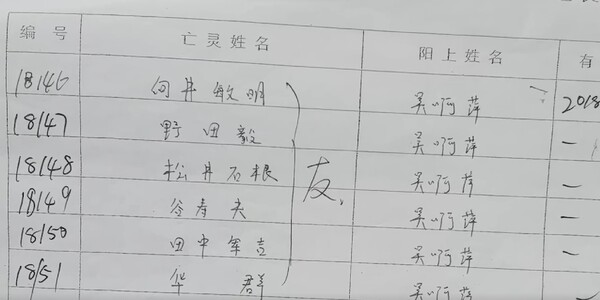 编号 亡灵姓名 阳上姓名 有
18146 向井敏明 吴啊萍 2018
18147 野田毅 吴啊萍 一
18148 松井石根 友、 吴啊萍 一
18149 谷寿夫 吴啊萍 一
18150 田中军吉 吴啊萍 一
18151 华群 吴啊萍